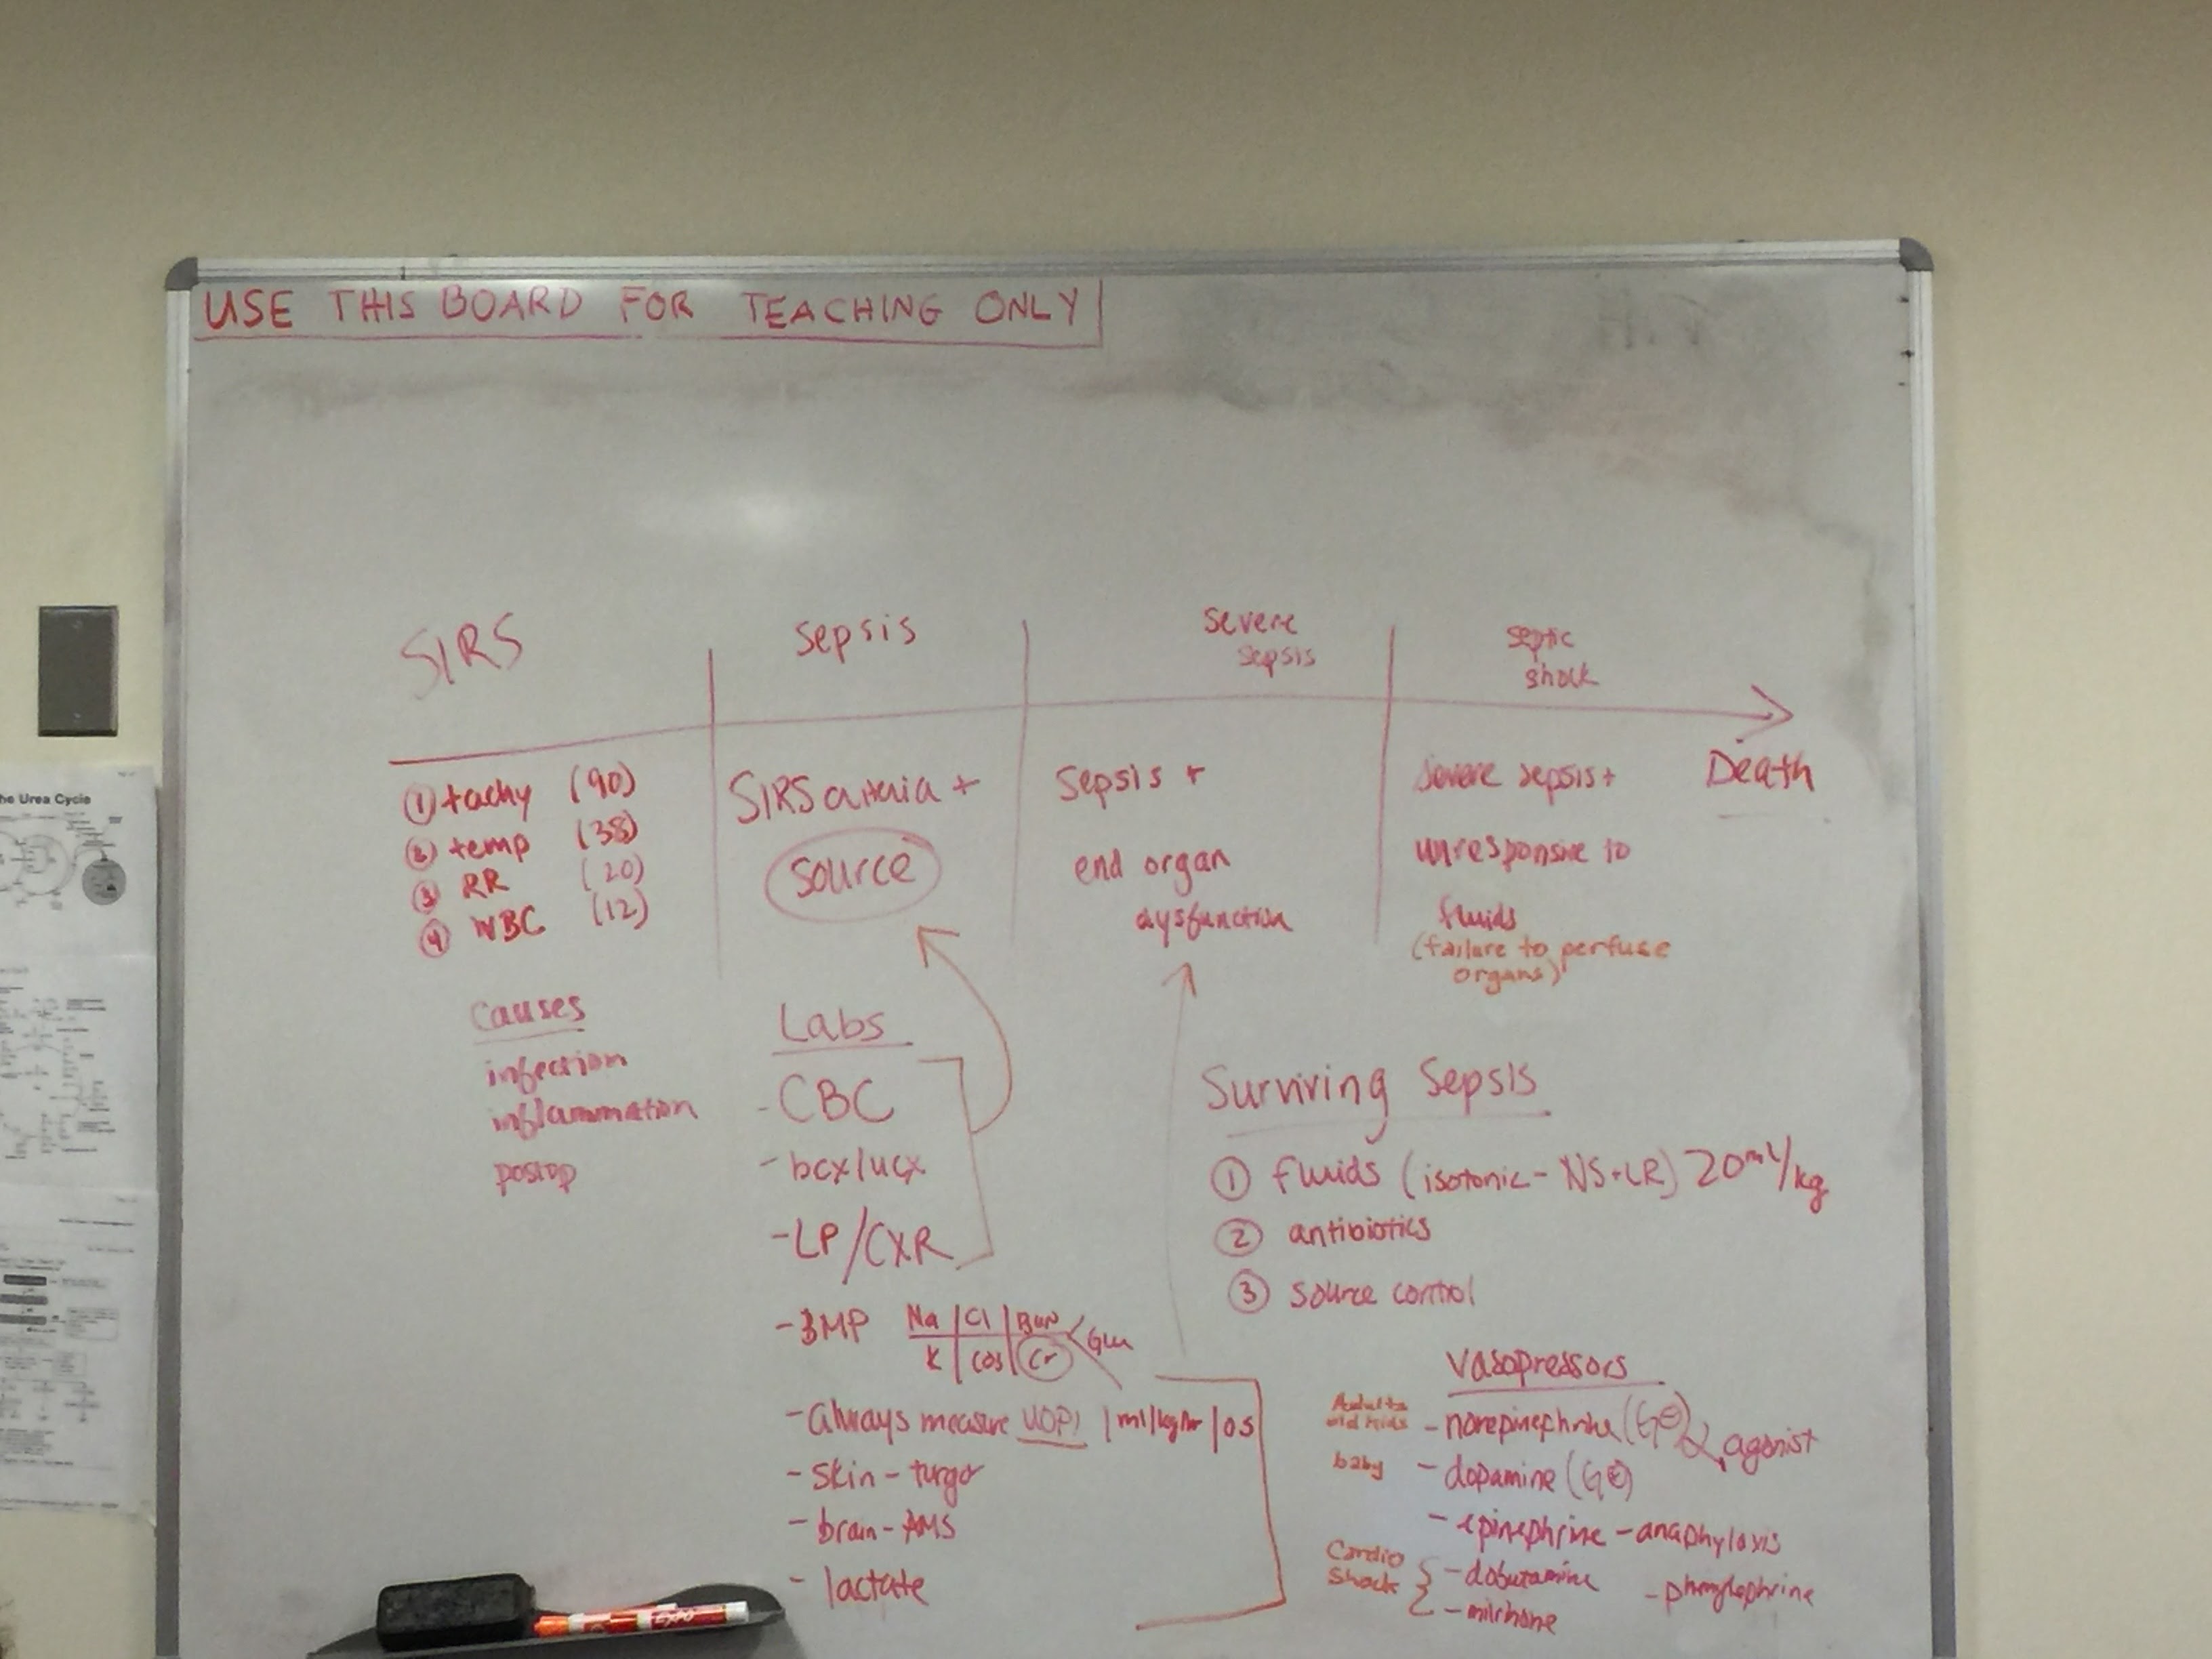 USE THIS BOARD FOR TEACHING ONLY
SIRS
sepsis
severe
sepsis
septic
shock
① tachy (90)
② temp (38)
③ RR (20)
④ WBC (12)
SIRS +
source
Sepsis +
end organ
dysfunction
severe sepsis +
unresponsive to
fluids
(failure to perfuse
organs)
Death
causes
infection
inflammation
postop
Labs
- CBC
- bcx/ucx
- LP/CXR
- BMP Na Cl BUN Glu
K Cr
- always measure UOP 1 ml/kg/hr
- skin - turgor
- brain - AMS
- lactate
Surviving Sepsis
① fluids (isotonic - NS + LR) 20 ml/kg
② antibiotics
③ source control
vasopressors
Adults
old kids - norepinephrine (G⊖) agonist
baby - dopamine
- epinephrine - anaphylaxis
Cardio
shock
- dobutamine - phenylephrine
- milrinone
he Urea Cycle
EXPO